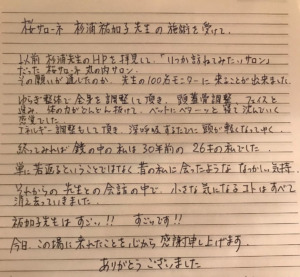 桜サローネ 杉浦裕加子先生の施術を受けて。
以前 杉浦先生のHPを拝見して、「いつか訪ねてみたいサロン」
だった 桜サローネ 丸の内サロン。
その願いが通じたのか、先生の100名モニターに来ることが出来ました。
ゆらぎ整体で全身を調整して頂き、頭蓋骨調整、フェイスと
進み、体の力がどんどん抜けて、ベッドにペターッと寝て沈んでいく
感覚でした。
エネルギー調整もして頂き、深呼吸するたびに顔が軽くなってゆく。
終ってみれば 鏡の中の私は30年前の 26才の私でした。
単に若返るということではなく 昔の私に会ったような なつかしい気持。
それからの先生との会話の中で、小さな気になるコトはすべて
消え去っていきました。
裕加子先生は すごッ!! すごッです!!
今日、この場に来れたことを心から感謝申し上げます。
ありがとうございました